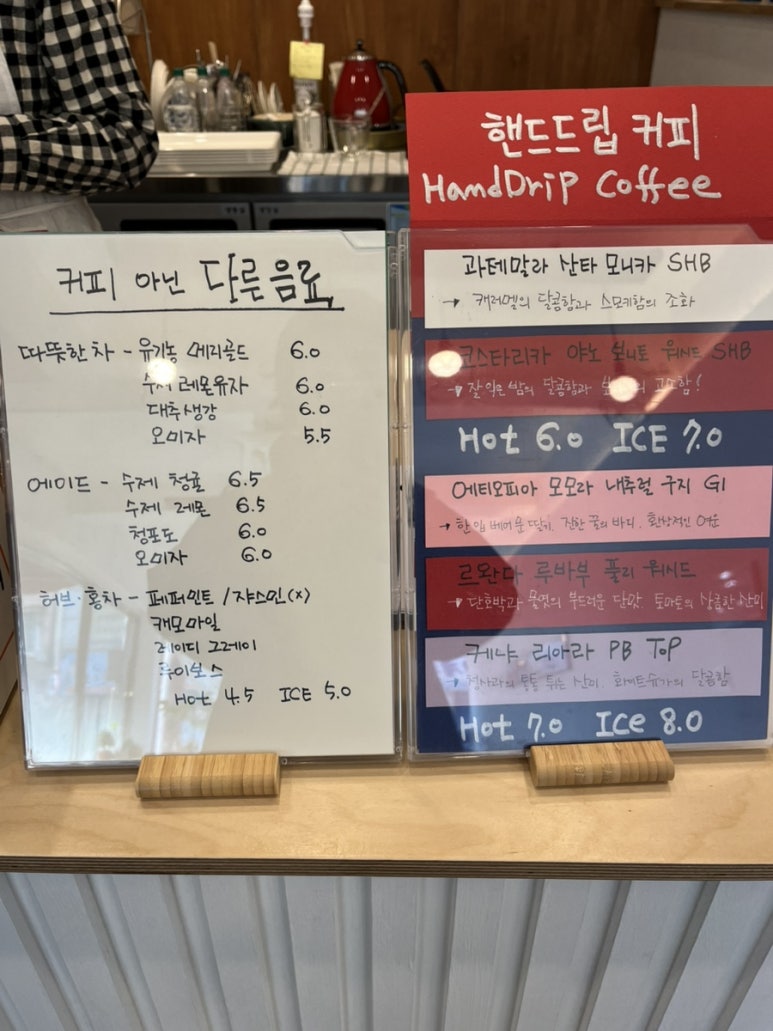 커피 아닌 다른음료
따뜻한차 - 유기농 메리골드 6.0
수제 레몬유자 6.0
대추생강 6.0
오미자 5.5
에이드 - 수제 청귤 6.5
수제 레몬 6.5
청포도 6.0
오미자 6.0
허브·홍차 - 페퍼민트 / 쟈스민(x)
캐모마일
레이디 그레이
루이보스
Hot 4.5 ICE 5.0
핸드드립 커피
HandDrip Coffee
과테말라 산타 모니카 SHB
→ 캐러멜의 달콤함과 스모키함의 조화
코스타리카 야노 보니토 워시드 SHB
→ 잘 익은 밤의 달콤함과 고소함!
Hot 6.0 ICE 7.0
에티오피아 모모라 내추럴 구지 G1
→ 한입 베어문 딸기. 진한 꿀의 바디. 환상적인 여운
르완다 루바부 풀리 워시드
→ 단호박과 물엿의 부드러운 단맛. 토마토의 상큼한 산미
케냐 리아라 PB TOP
→ 청사과의 통통 튀는 산미. 화이트슈가의 달콤함
Hot 7.0 ICE 8.0